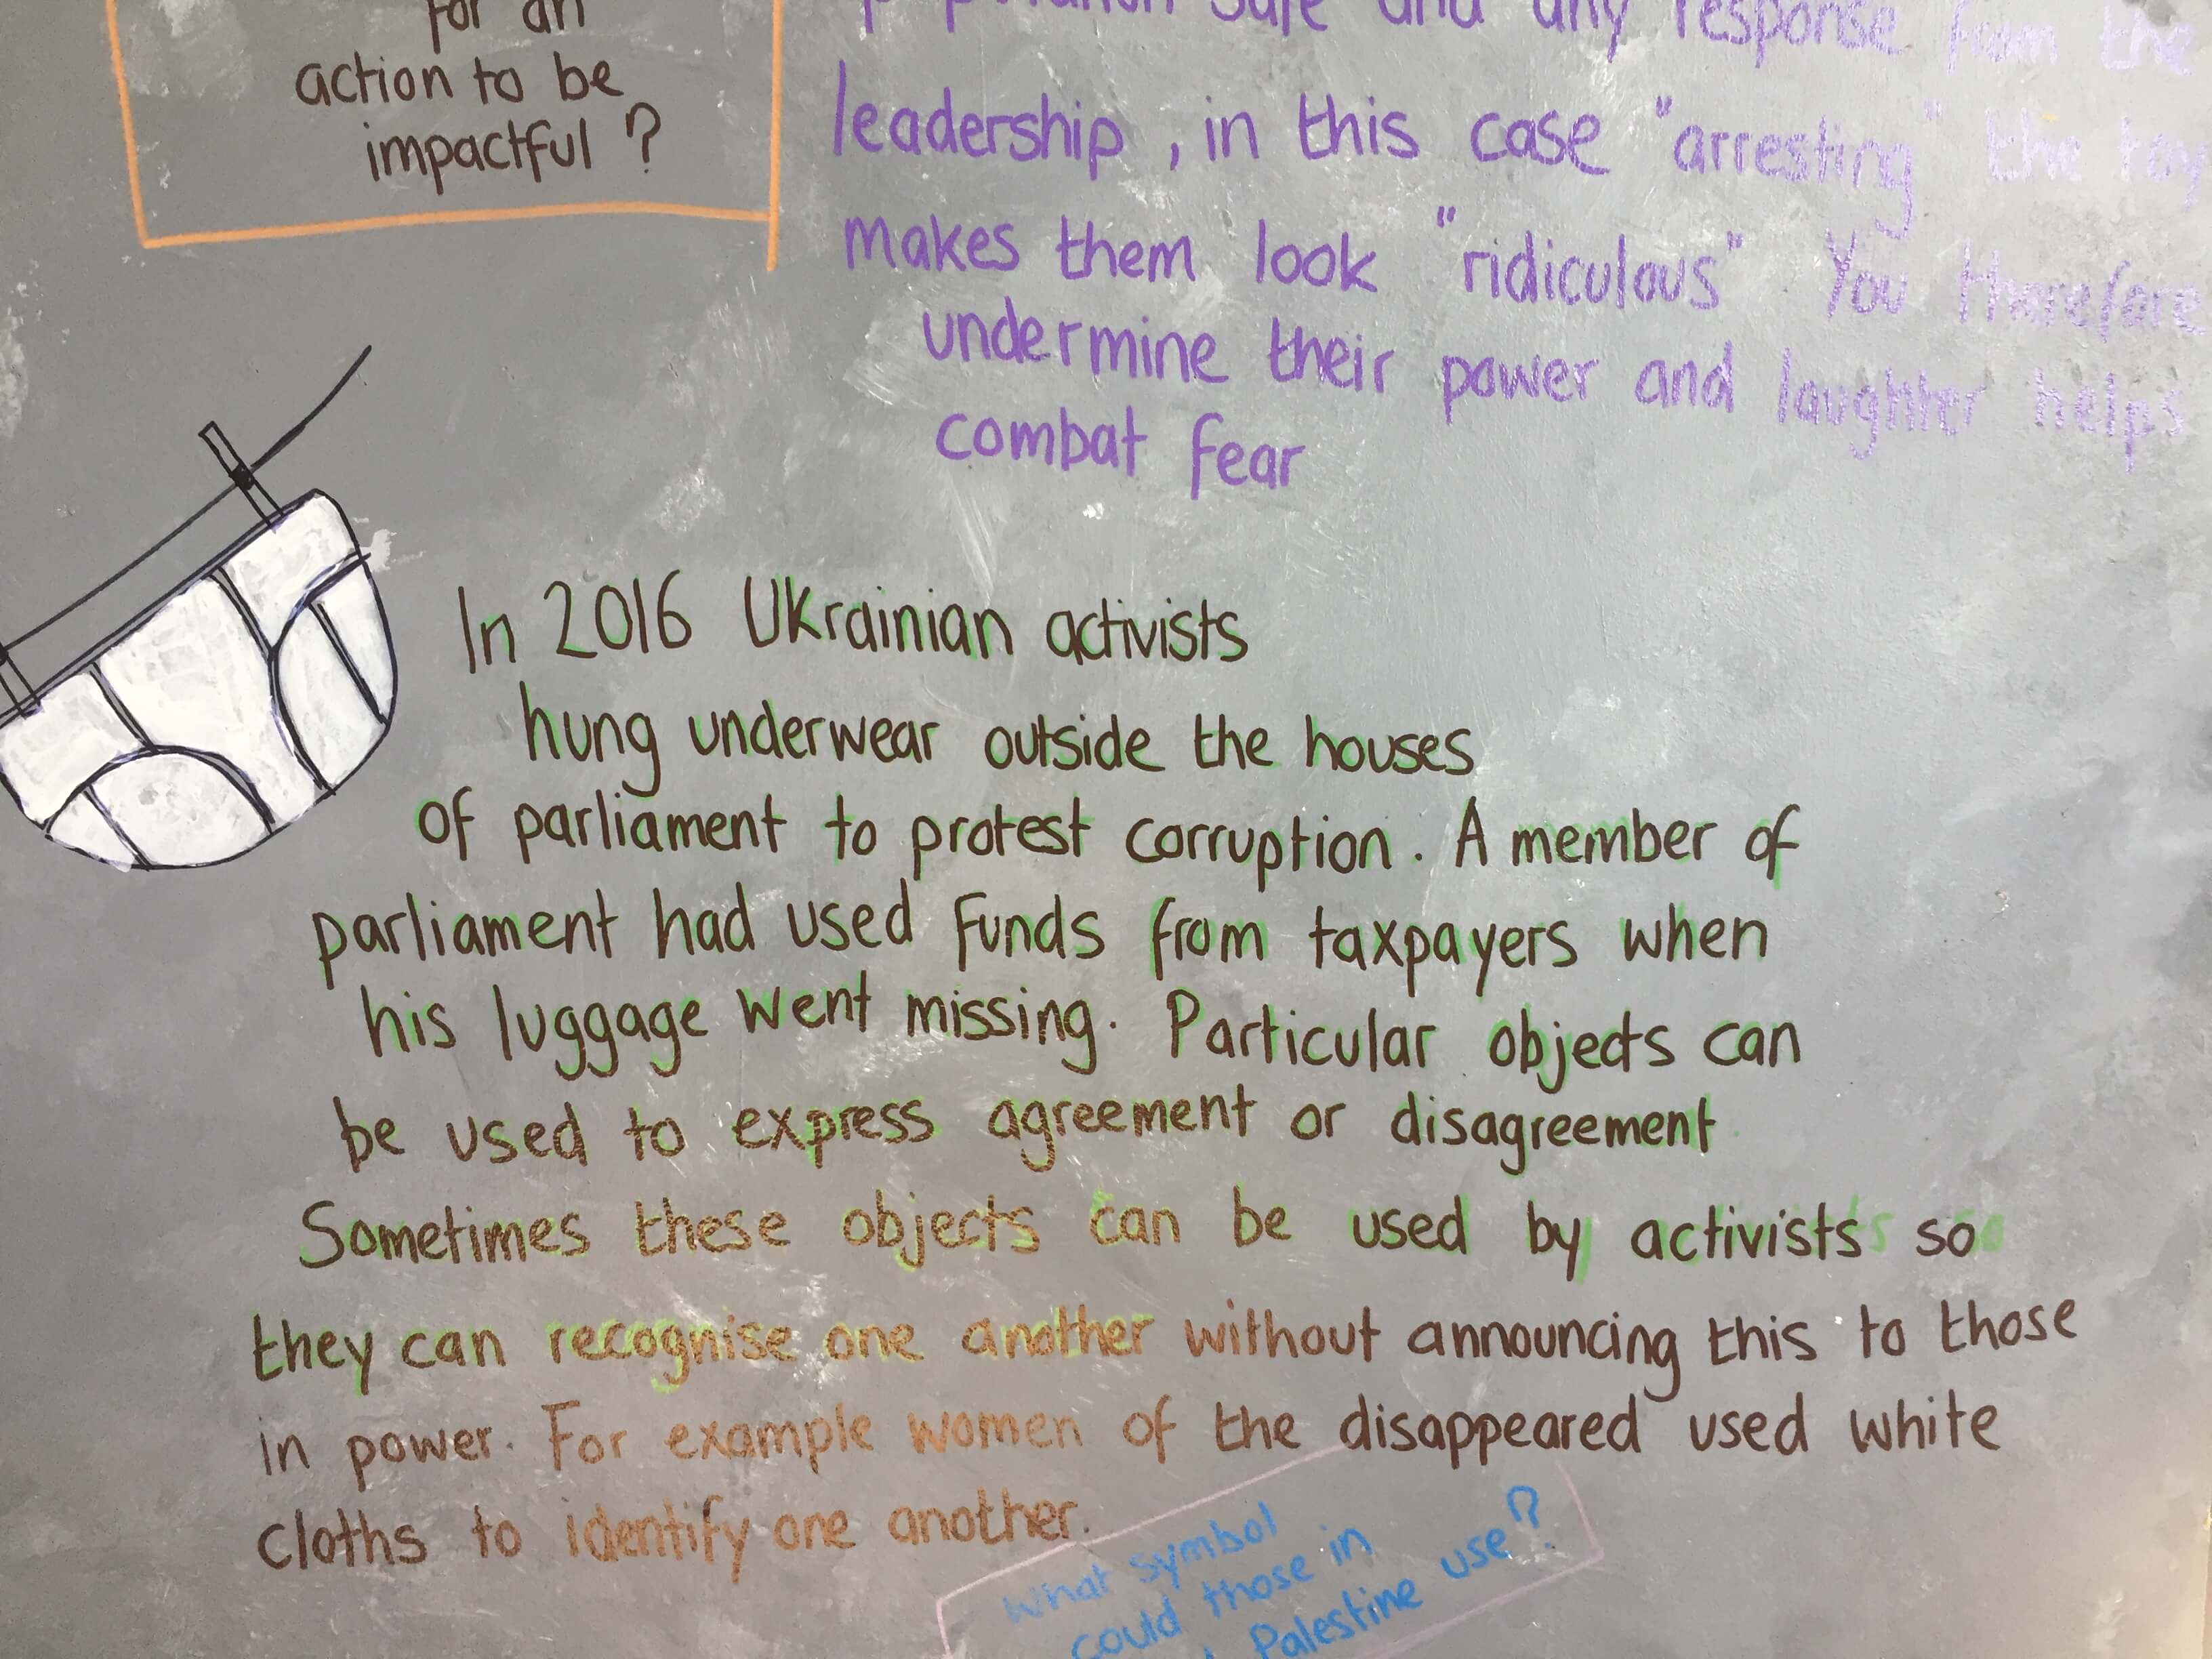 for an
action to be
impactful?
safe and any response from the
leadership, in this case "arresting" the toy
makes them look "ridiculous" You therefore
undermine their power and laughter helps
combat fear
In 2016 Ukrainian activists
hung underwear outside the houses
of parliament to protest corruption. A member of
parliament had used funds from taxpayers when
his luggage went missing. Particular objects can
be used to express agreement or disagreement
Sometimes these objects can be used by activists so
they can recognise one another without announcing this to those
in power. For example women of the disappeared used white
cloths to identify one another.
What symbol
could those in
Palestine use?